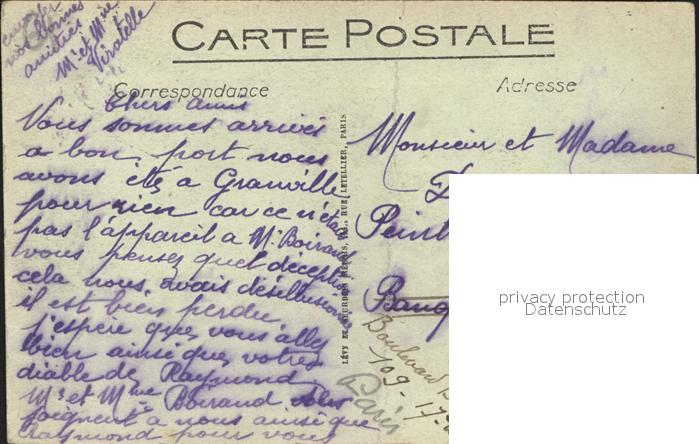 CARTE POSTALE
Correspondance
Adresse
Chers amis
Vous sommes arrivés
a bon port nous
avons été a Granville
pour rien car ce n'était
pas l'appareil a Mr Boirand
vous pensez quel déception
cela nous avais désillusionné
il est bien perdu.
j'espère que vous allez
bien ainsi que votre
diable de Raymond
Mr et Mme Boirand
joignent a nous ainsi que
Raymond pour vous
envoyer
nos bonnes
amitiés
Mr et Mme
Viratelle
LÉVY ET NEURDEIN RÉUNIS, RUE LETELLIER, PARIS
Monsieur et Madame
D
Peint
Banq
Boulevard
109-
Paris
privacy protection
Datenschutz